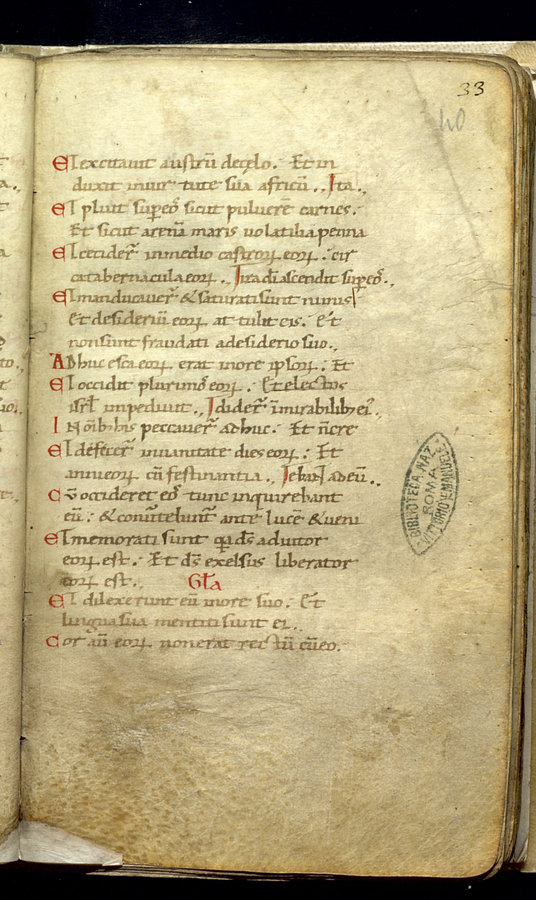 33
40
ET excitavit austrū decęlo. Et in
duxit invir tute sua africū., Ita.,
ET pluit sup eos sicut pulverē carnes.
Et sicut arenā maris volatilia penna
ET ceciderr̄ inmedio castrorꝝ eorꝝ : cir
ca tabernacula eorꝝ., Ira dī ascendit sup eos.,
ET manducaver̄ & saturati sunt nimis
et desideriū eorꝝ at tulit eis. Et
non sunt fraudati adesiderio suo.,
ADhuc esca eorꝝ erat inore ipsorꝝ : Et
ET occidit plurimos eorꝝ. Et electos
isrl̄ impedivit.,
IN oīb; his peccaver̄ adhuc. Et n̄ cre
ET defecer̄ invanitate dies eorꝝ : Et
anni eorꝝ cū festinantia.,
Cū occideret eos tunc inquirebant
eū : & convertebant̄ ante lucē & veni
ET memorati sunt quia ds̄ adiutor
eorꝝ est. Et ds̄ excelsus liberator
eorꝝ est. Gl̄a
ET dilexerunt eū inore suo. Et
lingua sua mentiti sunt ei.
Cor aū eorꝝ non erat rectū cū eo.
BIBLIOTECA NAZ.
ROMA
VITTORIO EMANUELE